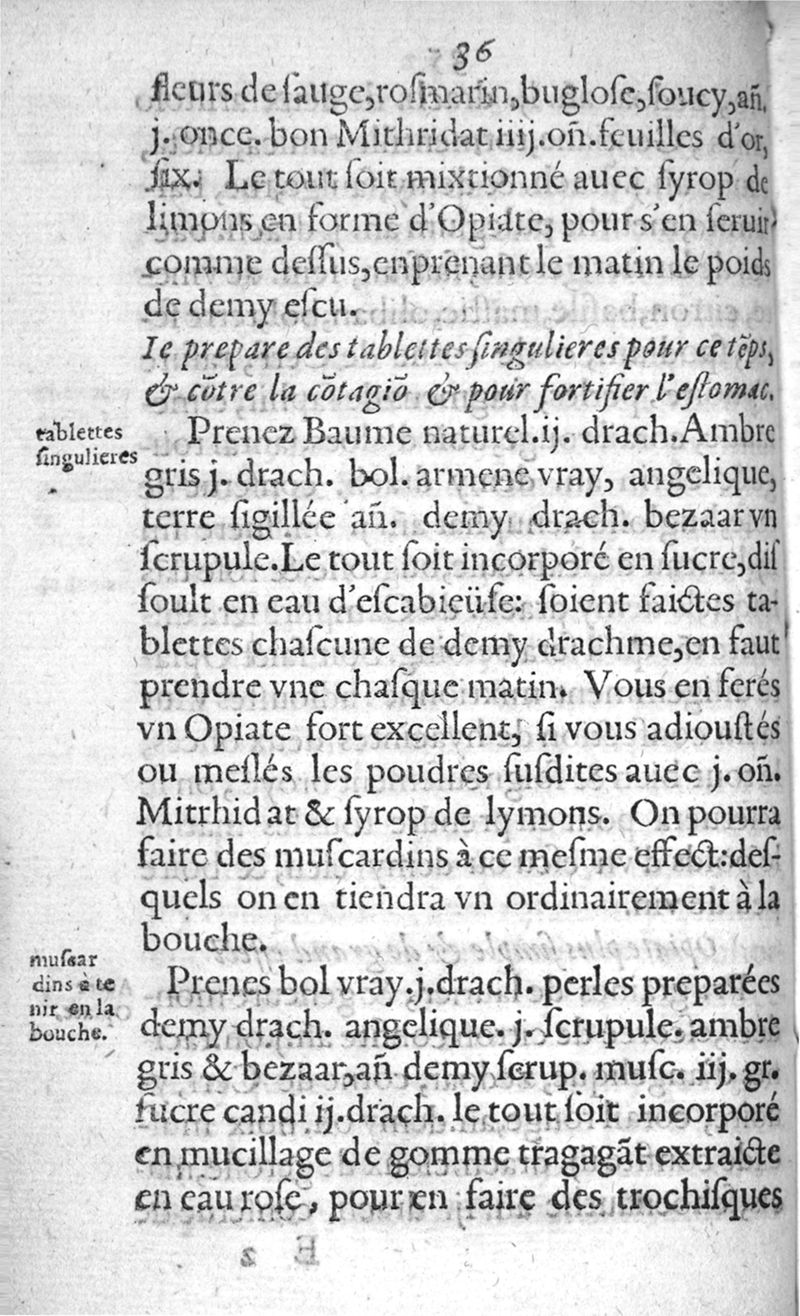 36
fleurs de ſauge,roſmarin,bugloſe,ſoucy,añ.
j. once. bon Mithridat iiij.oñ.feuilles d'or,
ſix. Le tout ſoit mixtionné auec ſyrop de
limons en forme d'Opiate, pour s'en ſeruir
comme deſſus,enprenant le matin le poids
de demy eſcu.
Ie prepare des tablettes ſingulieres pour ce tẽps,
& cõtre la cõtagiõ & pour fortifier l'eſtomac.
tablettes
ſingulieres
Prenez Baume naturel.ij. drach.Ambre
gris j. drach. bol. armene vray, angelique,
terre ſigillée añ. demy drach. bezaar vn
ſcrupule.Le tout ſoit incorporé en ſucre,diſ
ſoult en eau d'eſcabieüſe: ſoient faictes ta-
blettes chaſcune de demy drachme,en faut
prendre vne chaſque matin. Vous en ferés
vn Opiate fort excellent, ſi vous adiouſtés
ou meſlés les poudres ſuſdites auec j. oñ.
Mitrhidat & ſyrop de lymons. On pourra
faire des muſcardins à ce meſme effect:deſ-
quels on en tiendra vn ordinairement à la
bouche.
muſar
dins à te
nir en la
bouche.
Prenes bol vray.j.drach. perles preparées
demy drach. angelique. j. ſcrupule. ambre
gris & bezaar,añ demy ſcrup. muſc. iij. gr.
ſucre candi ij.drach. le tout ſoit incorporé
en mucillage de gomme tragagãt extraicte
en eau roſe, pour en faire des trochiſques